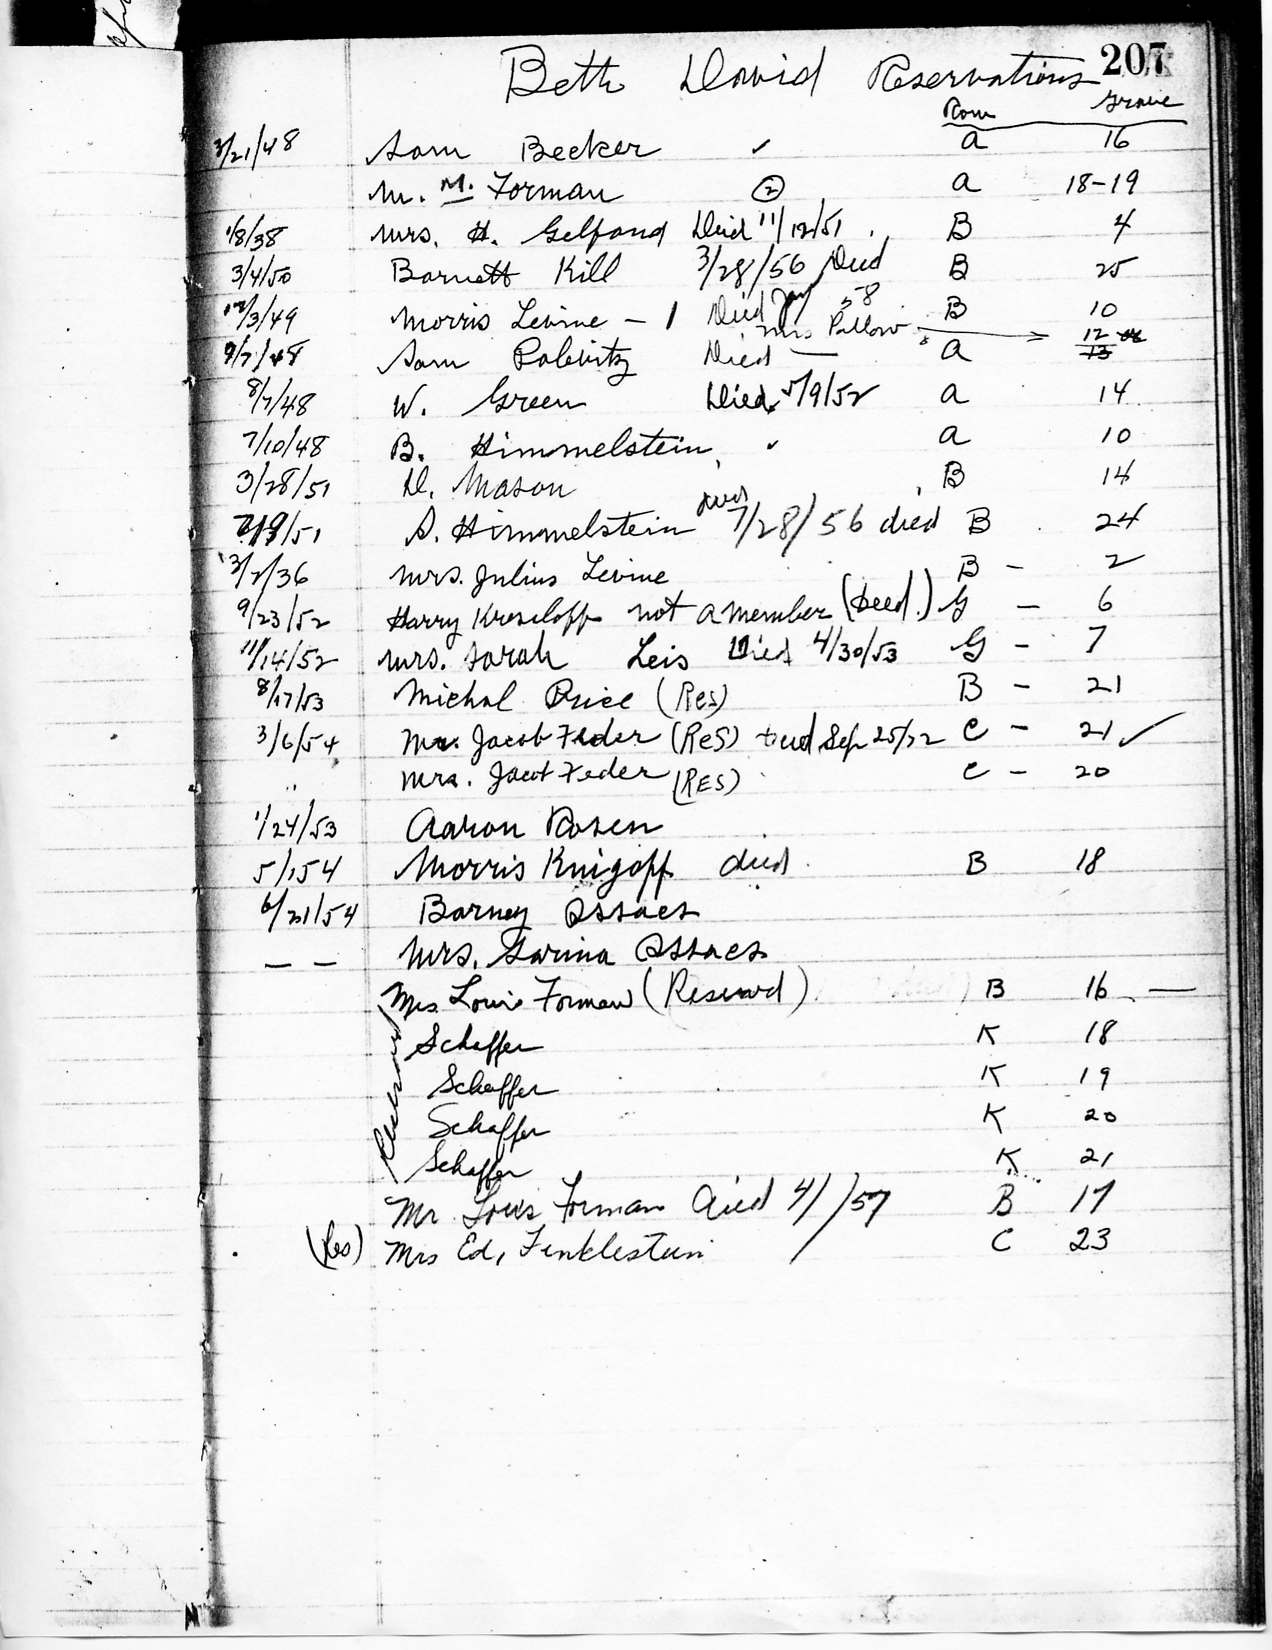 207
Beth David Reservations
Row Grave
3/21/48 Sam Becker ✓ A 16
M. M. Forman ② A 18-19
1/8/38 Mrs. H. Gelfand Died 11/12/51 B 4
3/4/50 Barnett Kill 3/28/56 Died B 25
12/3/49 Morris Levine - 1 Died Jan 58 B 10
Mrs
9/7/48 Sam Died — A 12 13
8/7/48 W. Green Died 5/9/52 A 14
7/10/48 B. Himmelstein ✓ A 10
3/28/51 D. Mason B 14
/51 S. Himmelstein died 7/28/56 died B 24
3/2/36 Mrs. Julius Levine B - 2
9/23/52 Harry Kresloff not a member (Deed.) G - 6
11/14/52 Mrs. Sarah Leis Died 4/30/53 G - 7
8/17/53 Michal Price (Res) B - 21
3/6/54 Mr. Jacob Feder (Res) died Sep 25/72 C - 21 ✓
" Mrs. Jacob Feder (RES) C - 20
1/24/53 Aaron Rosen
5/1/54 Morris Knigoff died B 18
6/21/54 Barney
— — Mrs.
Mrs Louis Forman (Reserved) B 16 —
Reserved
Schaffer K 18
Schaffer K 19
Schaffer K 20
Schaffer K 21
Mr Louis Forman died 4/ /57 B 17
(Res) Mrs Ed, Finklestein C 23